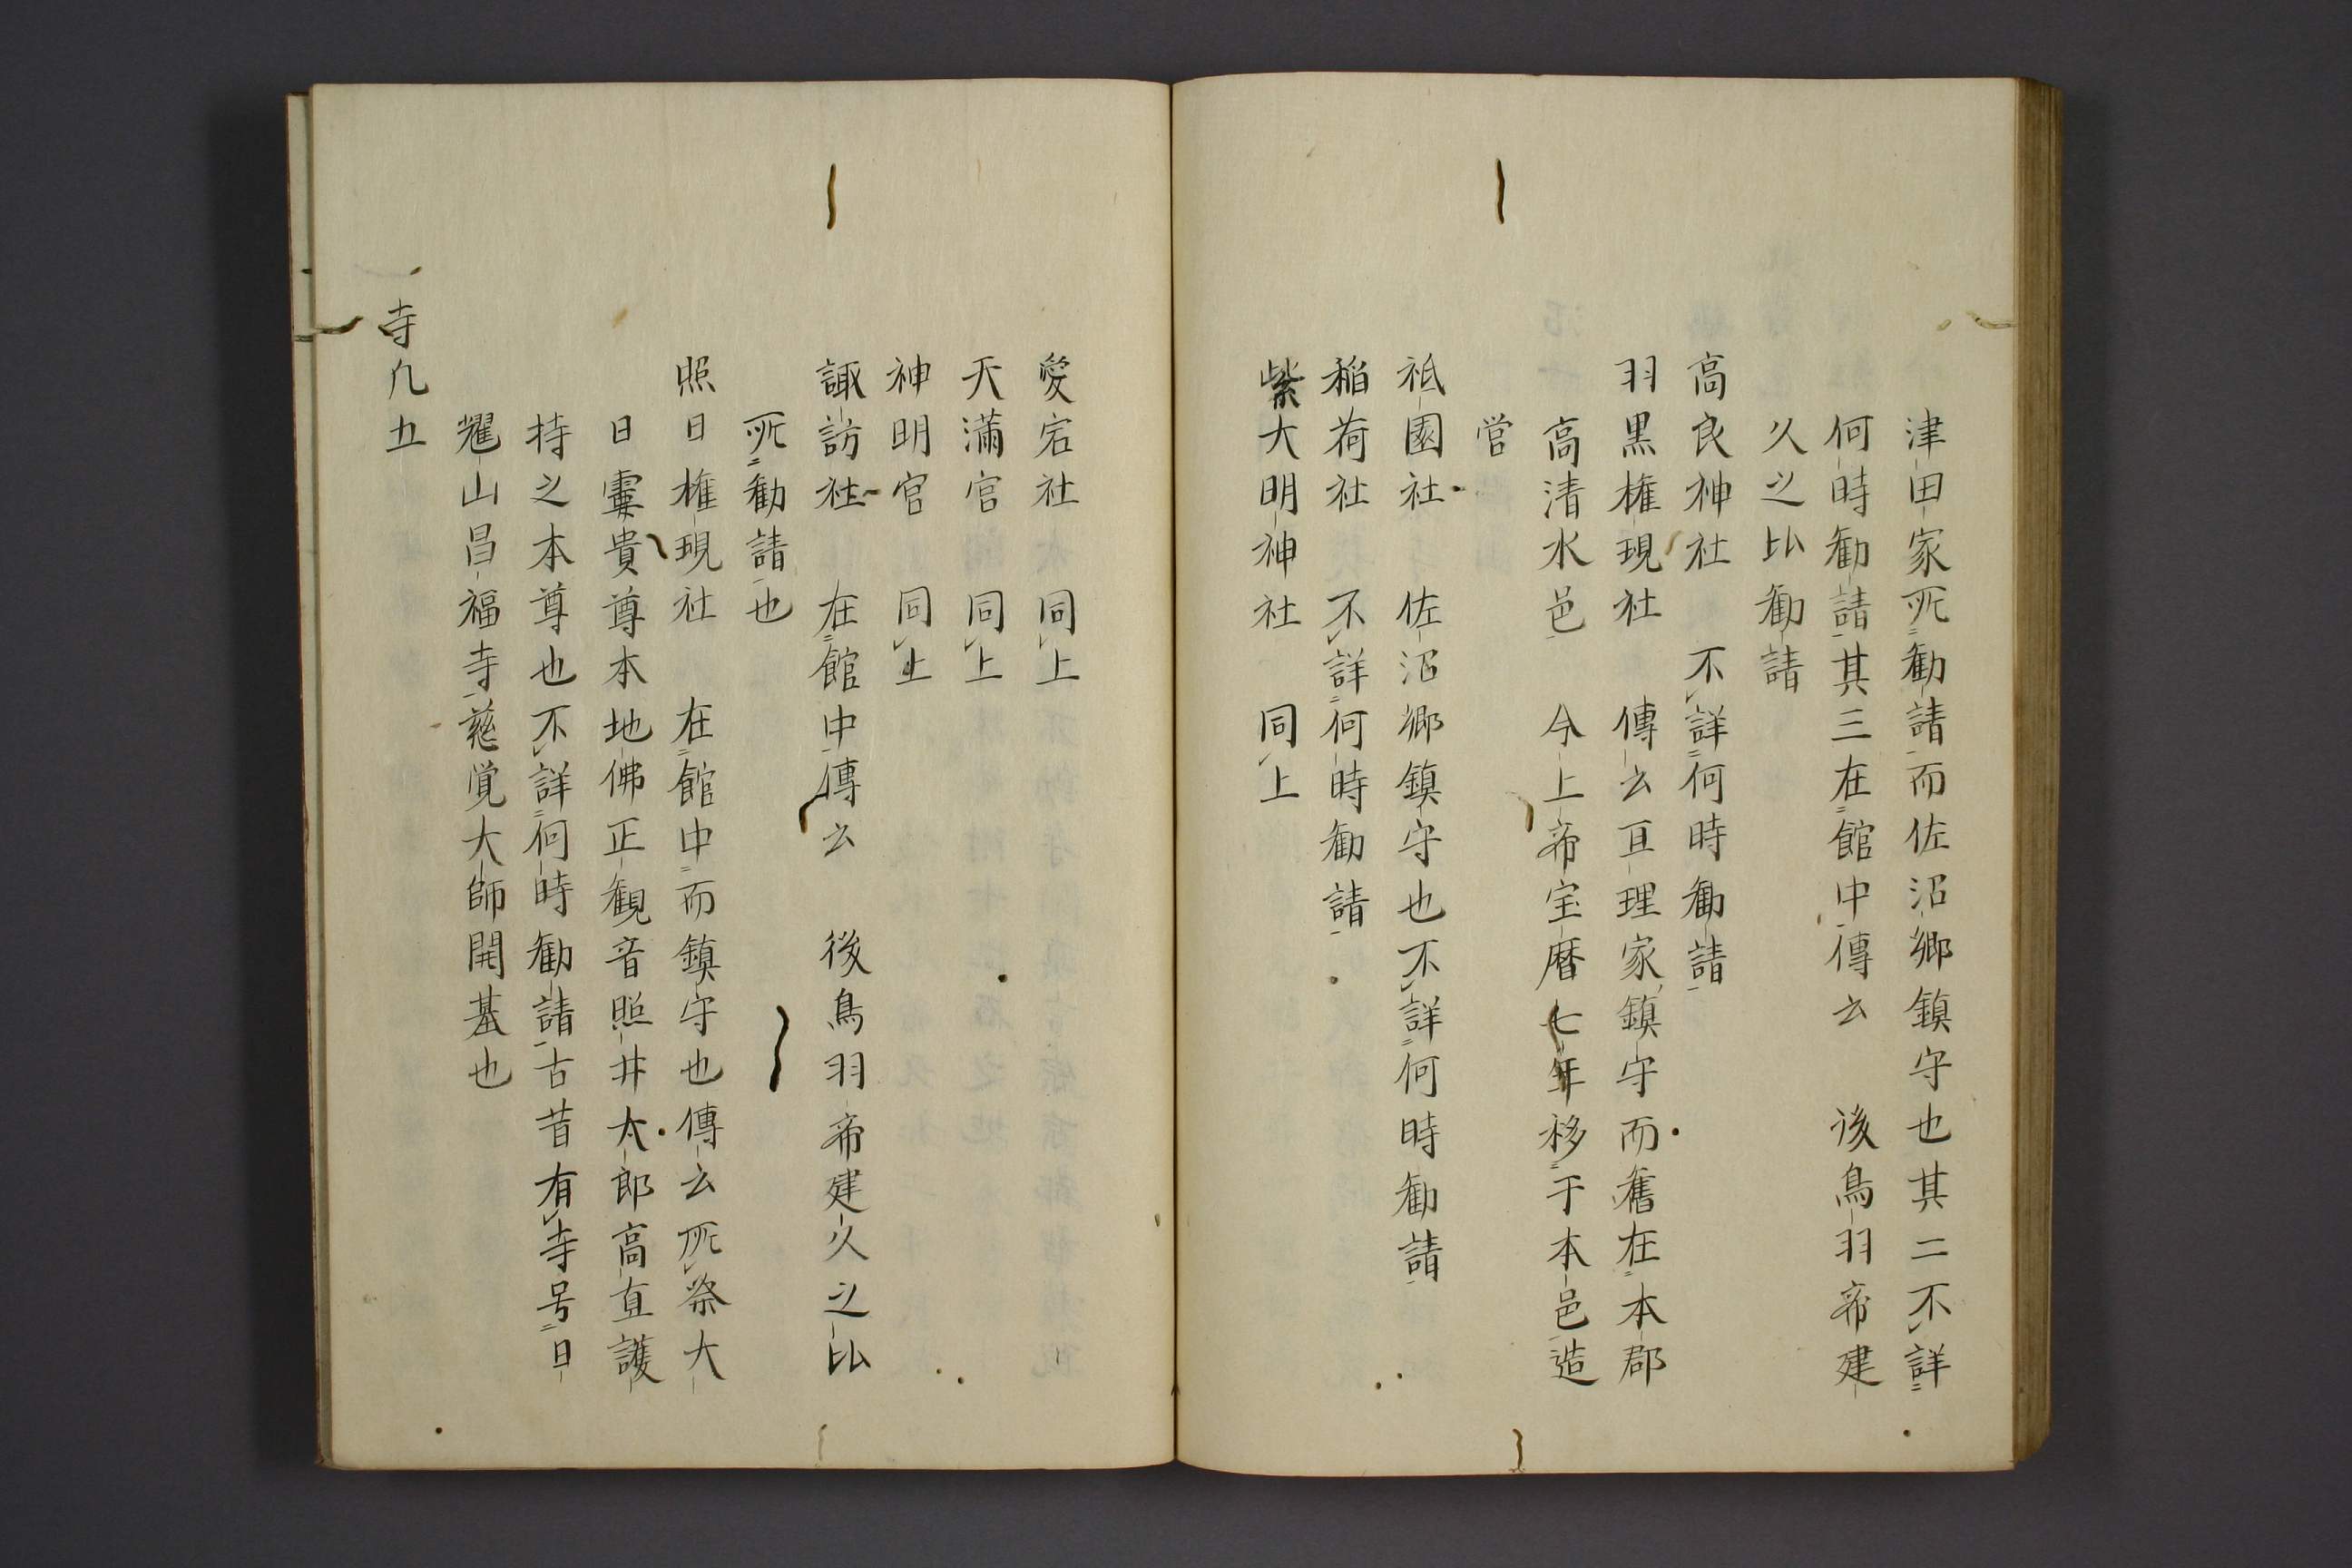 津田家所勧請而佐沼郷鎮守也其二不詳
何時勧請其三在館中傳云　後鳥羽帝建
久之比勧請
高良神社　不詳何時勧請
羽黒権現社　傳云亘理家鎮守而舊在本郡
高清水邑　今上帝宝暦七年移于本邑造
営
祇園社　佐沼郷鎮守也不詳何時勧請
稲荷社　不詳何時勧請
紫大明神社　同上
愛宕社　同上
天満宮　同上
神明宮　同上
諏訪社　在館中傳云　後鳥羽帝建久之比
所勧請也
照日権現社　在館中而鎮守也傳云所祭大
日霊貴尊本地佛正観音照井太郎高直護
持之本尊也不詳何時勧請古昔有寺号曰
耀山昌福寺慈覚大師開基也
寺凡五